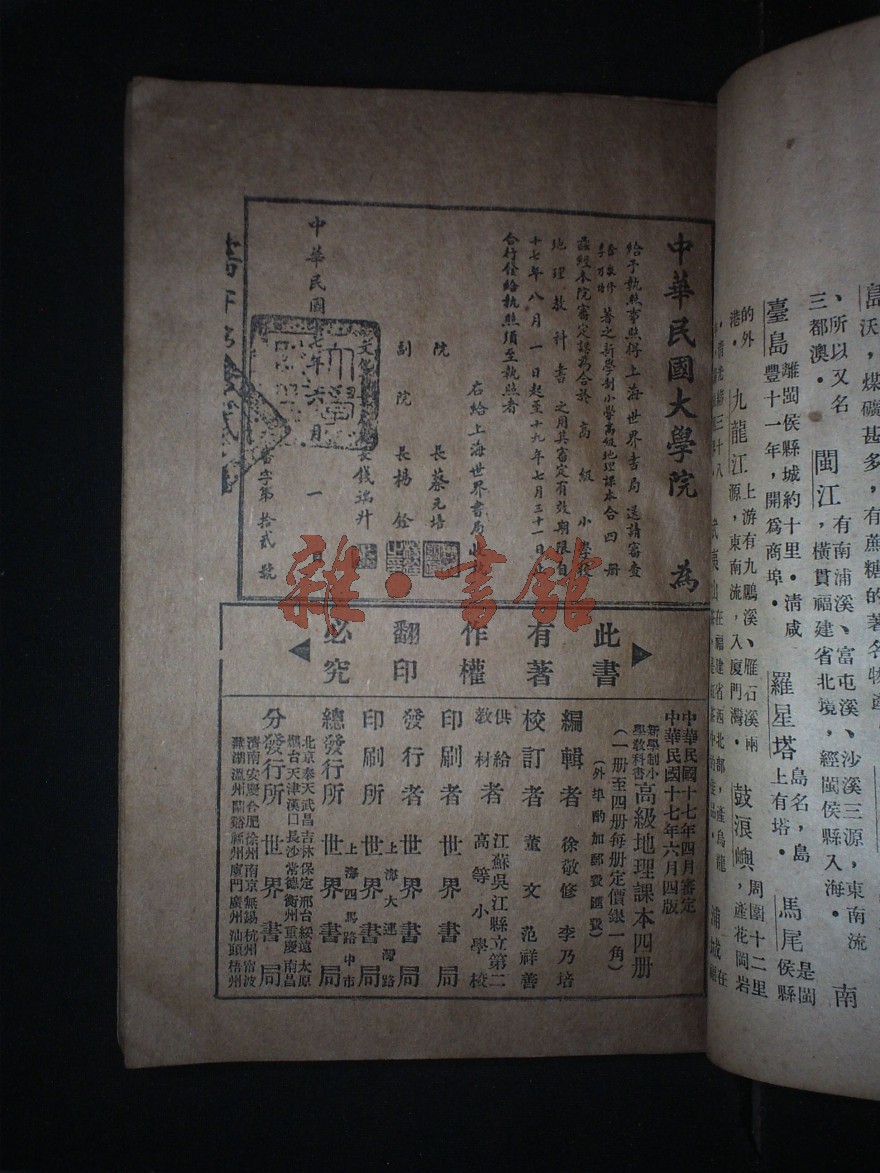 島沃，煤礦甚多，有蔗糖的著名物產
、所以又名
三都澳．
閩江
有南浦溪、富屯溪、沙溪三源，東南流
，橫貫福建省北境，經閩侯縣入海．
南
臺島
離閩侯縣城約十里．清咸
豐十一年，開爲商埠．
羅星塔
島名，島
上有塔．
馬尾
是閩
侯縣
的外
港．
九龍江
上游有九鵬溪、雁石溪兩
源，東南流，入廈門灣．
鼓浪嶼
周圍十二里
，產花岡岩
武夷山
在福建省西北部，產烏龍
浦城
在
中華民國大學院 為
給予執照事照得上海世界書局送請審查
徐敬修
李乃培
著之新學制小學高級地理課本合四册
茲經本院審定認為合於高級小學校
地理教科書之用其審定有效期限自
十七年八月一日起至十九年七月三十一日止
合行發給執照須至執照者
右給上海世界書局收執
院 長蔡元培
副院 長楊銓
長錢端升
中華民國十七年六月一日
書字第拾貳號
雜·書館
此書
有著
作權
翻印
必究
中華民國十七年四月審定
中華民國十七年六月四版
新學制小
學教科書
高級地理課本四册
（一册至四册每册定價銀一角）
（外埠酌加郵費匯費）
編輯者 徐敬修 李乃培
校訂者 董文 范祥善
供給
教材
者
江蘇吳江縣立第二
高等小學校
印刷者 世界書局
發行者 世界書局
上海大連灣路
印刷所 世界書局
上海四馬路中市
總發行所 世界書局
北京奉天武昌吉林保定邢台綏遠太原
煙台天津漢口長沙常德衡州重慶南昌
分發行所 世界書局
濟南安慶合肥徐州南京無錫杭州甯波
蕪湖溫州蘭谿福州廈門廣州汕頭梧州